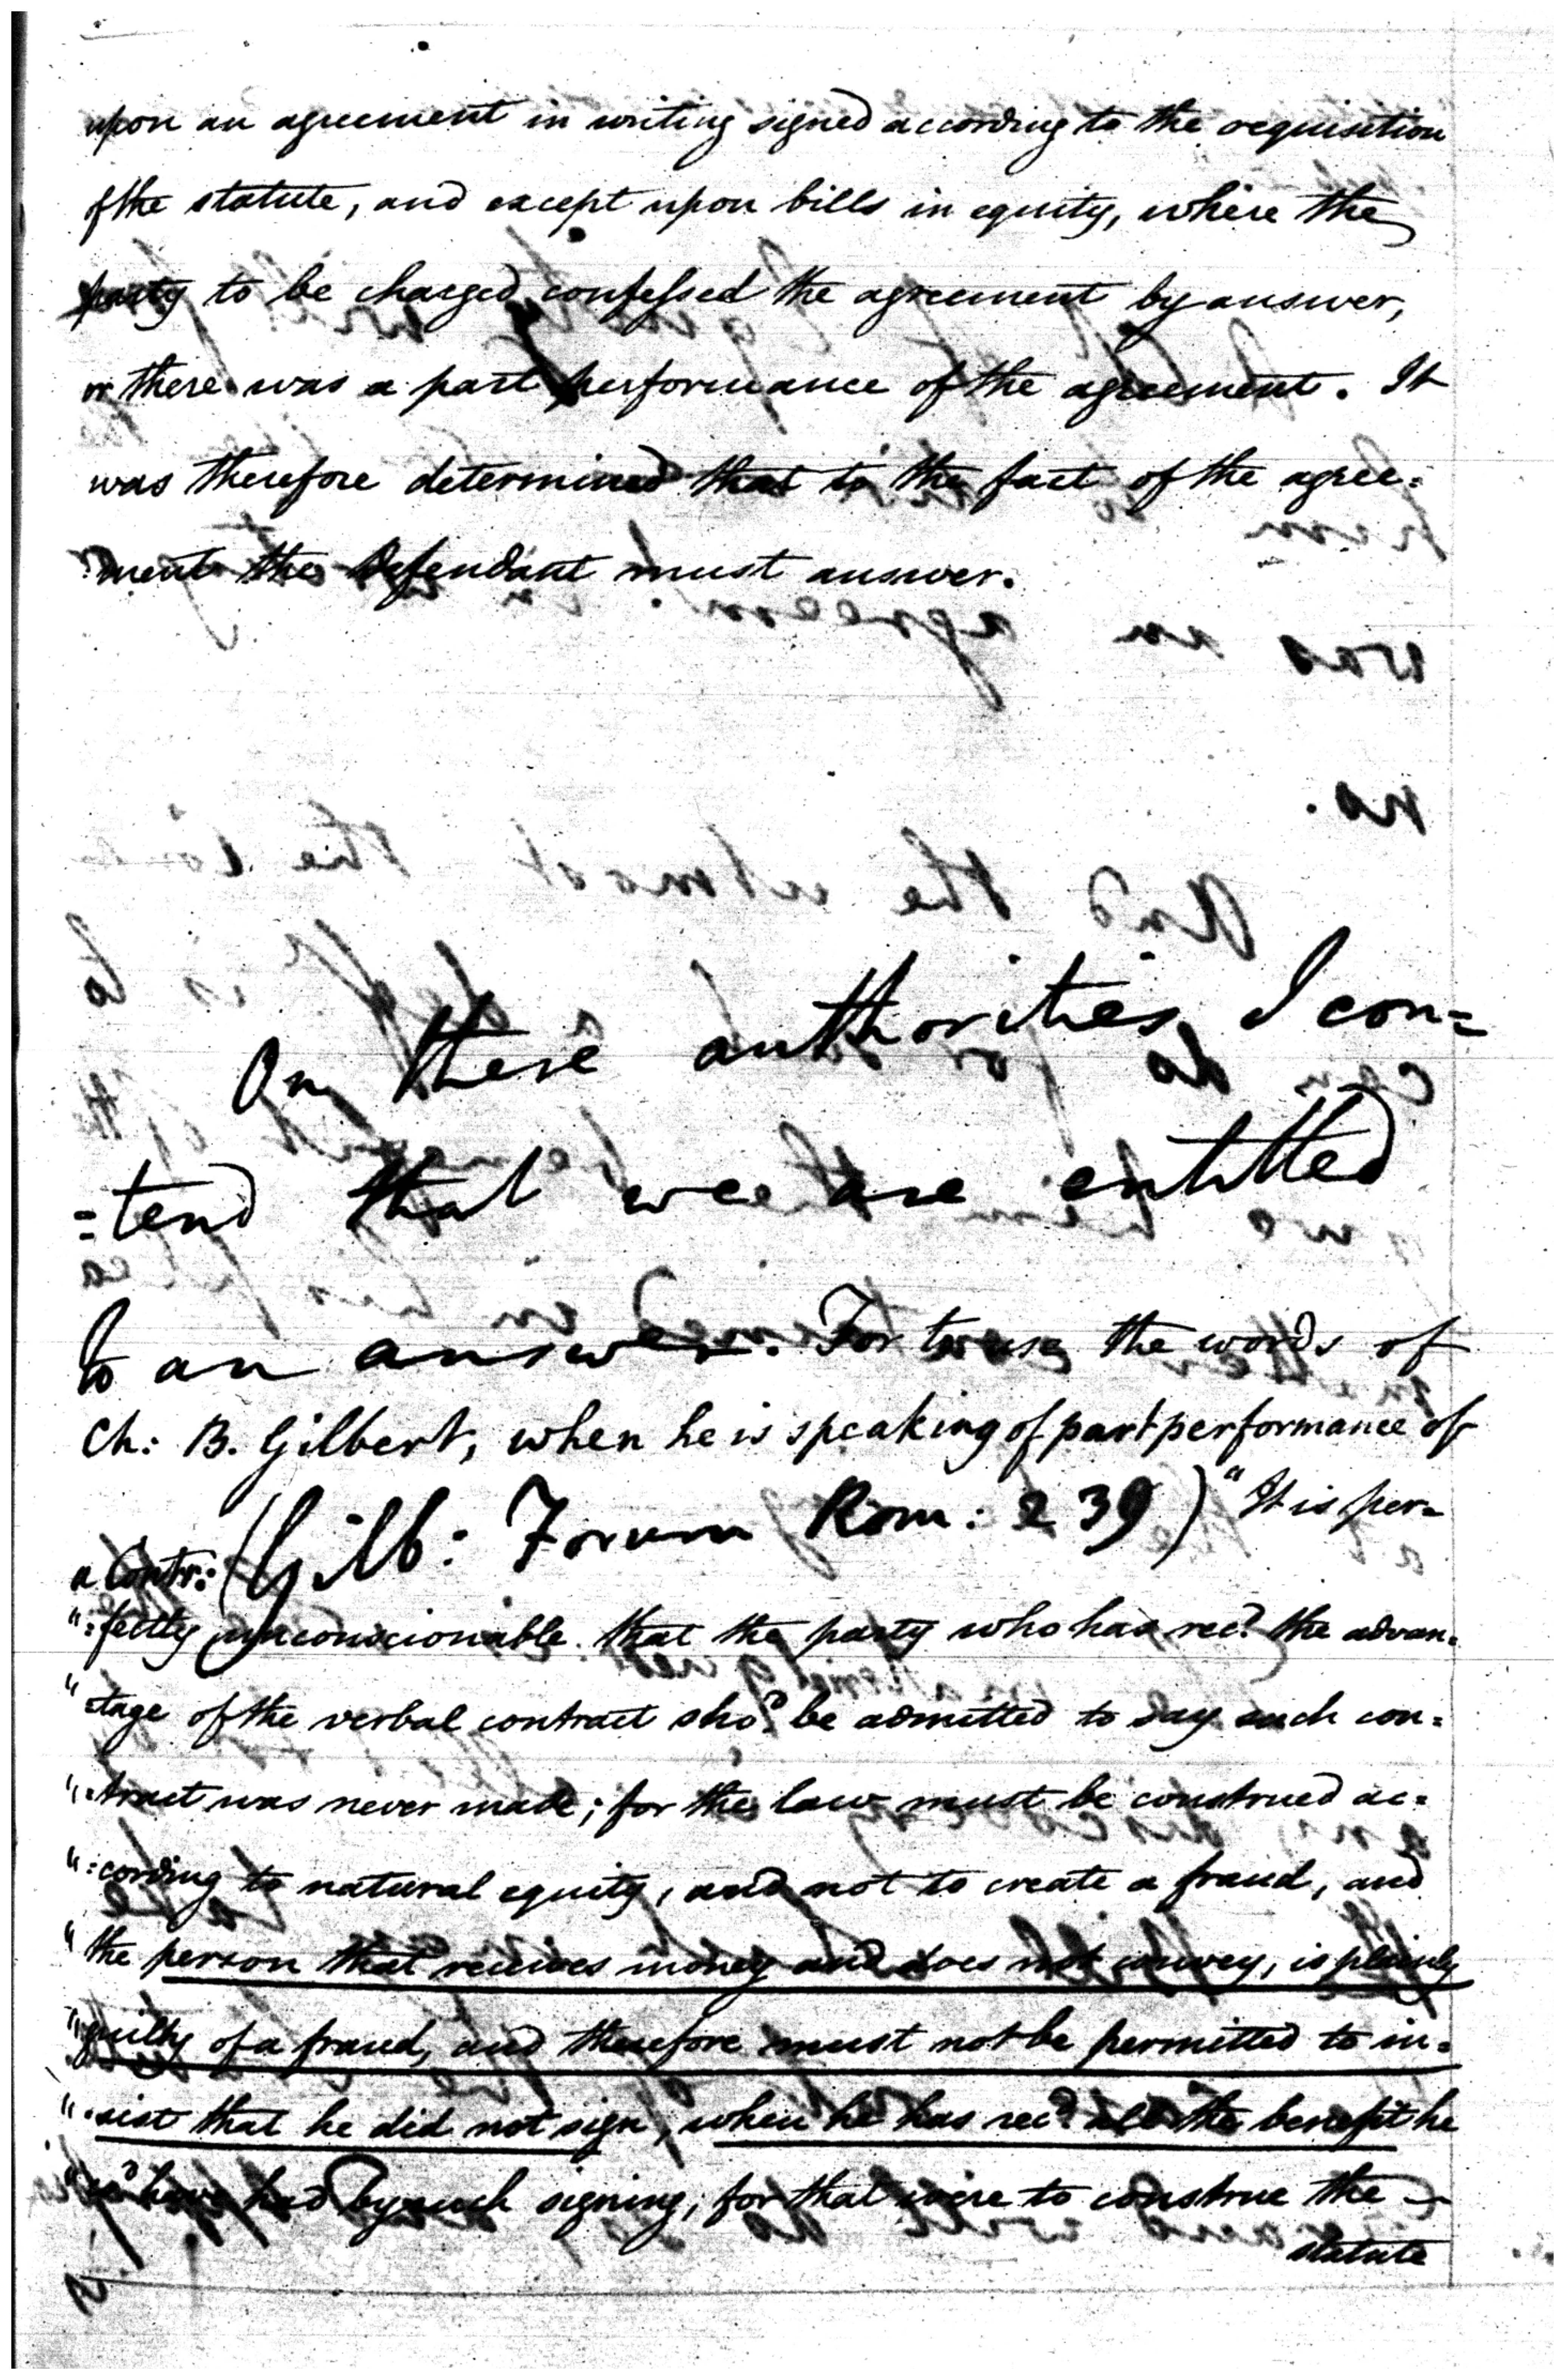 upon an agreement in writing signed according to the requisition
of the statute, and except upon bills in equity, where the
party to be charged confessed the agreement by answer,
or there was a part performance of the agreement. It
was therefore determined that to the fact of the agree=
=ment the Defendant must answer.
On these authorities I con=
=tend that we are entitled
to an answer. For to use the words of
Ch: B. Gilbert, when he is speaking of part performance of
a Contr: (Gilb: Forum Rom: 239) "It is per=
"=fectly unconscionable that the party who has rec.d the advan=
"=tage of the verbal contract sho.d be admitted to say such con=
"=tract was never made; for the law must be construed ac=
"=cording to natural equity, and not to create a fraud, and
"the person that receives money and does not convey, is plainly
"guilty of a fraud, and therefore must not be permitted to in=
"=sist that he did not sign, when he has rec.d all the benefit he
"co.d have had by such signing; for that were to construe the
statute